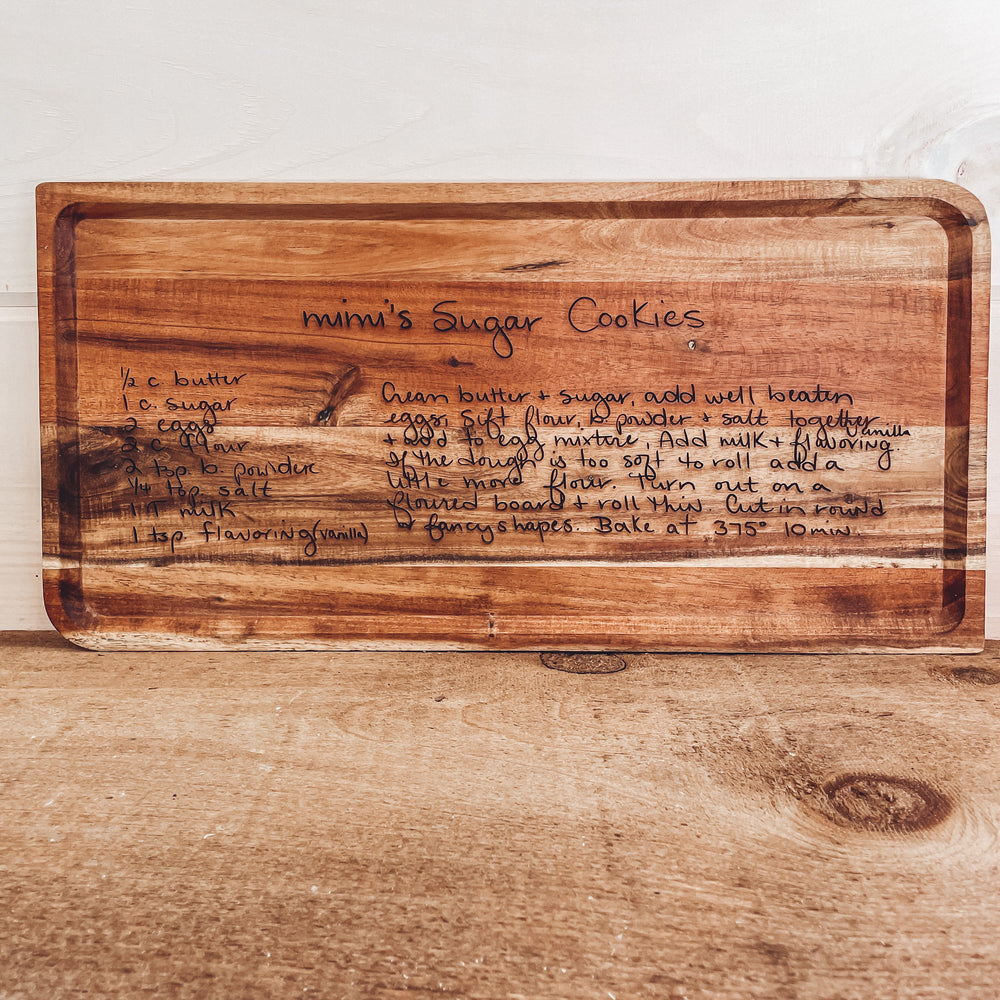 mimi's Sugar Cookies
1/2 c butter
1 c. sugar
2 eggs
2 c. flour
2 tsp. b. powder
1/4 tsp. salt
1 T milk
1 tsp. flavoring (vanilla)
Cream butter + sugar, add well beaten
eggs, Sift flour, b. powder + salt together
+ add to egg mixture. Add milk + flavoring. vanilla
If the dough is too soft to roll add a
little more flour. Turn out on a
floured board + roll thin. Cut in round
or fancy shapes. Bake at 375° 10 min.